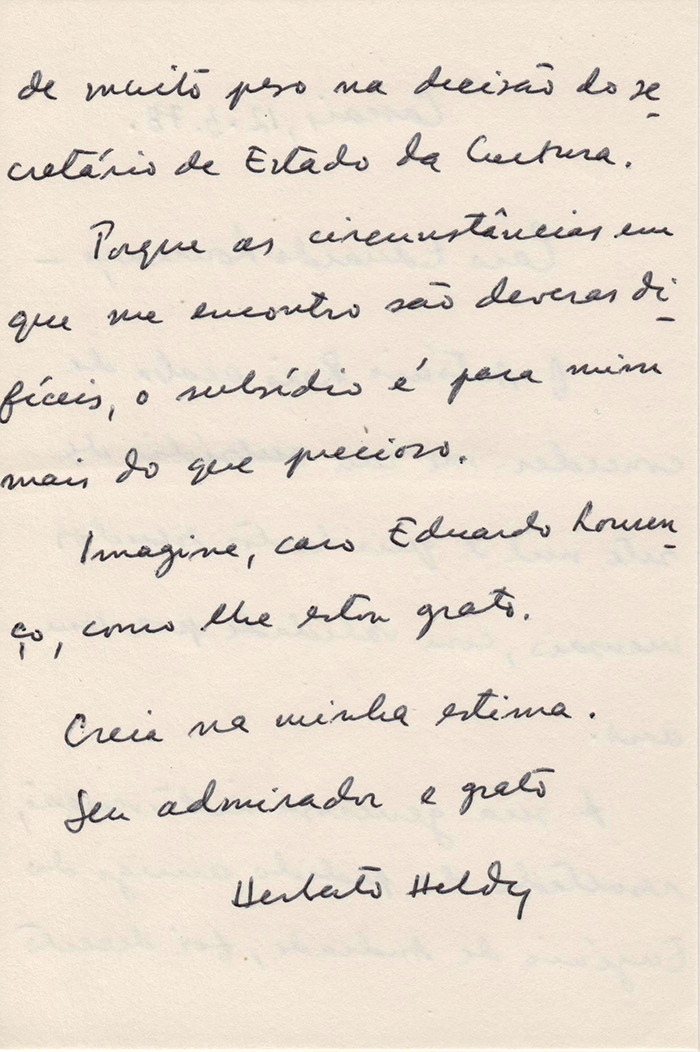 de muito peso na decisão do se
cretário de Estado da Cultura.
Porque as circunstâncias em
que me encontro são deveras di
fíceis, o subsídio é para mim
mais do que precioso.
Imagine, caro Eduardo Louren
ço, como lhe estou grato.
Creia na minha estima.
Seu admirador e grato
Herberto Helder